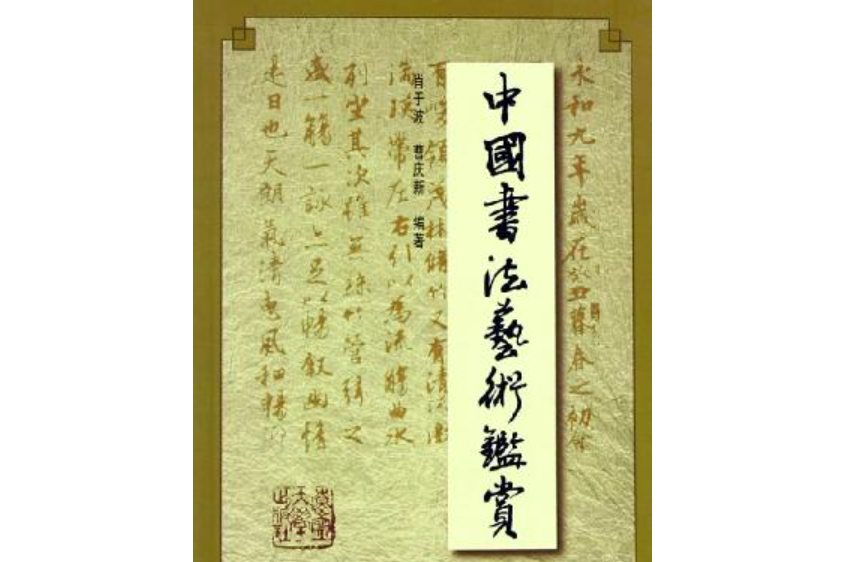 永和九年歲在癸丑暮春之初
中國書法藝術鑑賞
肖于波 曹庆新 编著
有峻領茂林脩竹又有清流激
湍暎帶左右引以為流觴曲水
列坐其次雖無絲竹管弦之
盛一觴一詠亦足以暢敘幽情
是日也天朗氣清惠風和暢
大學
出版社